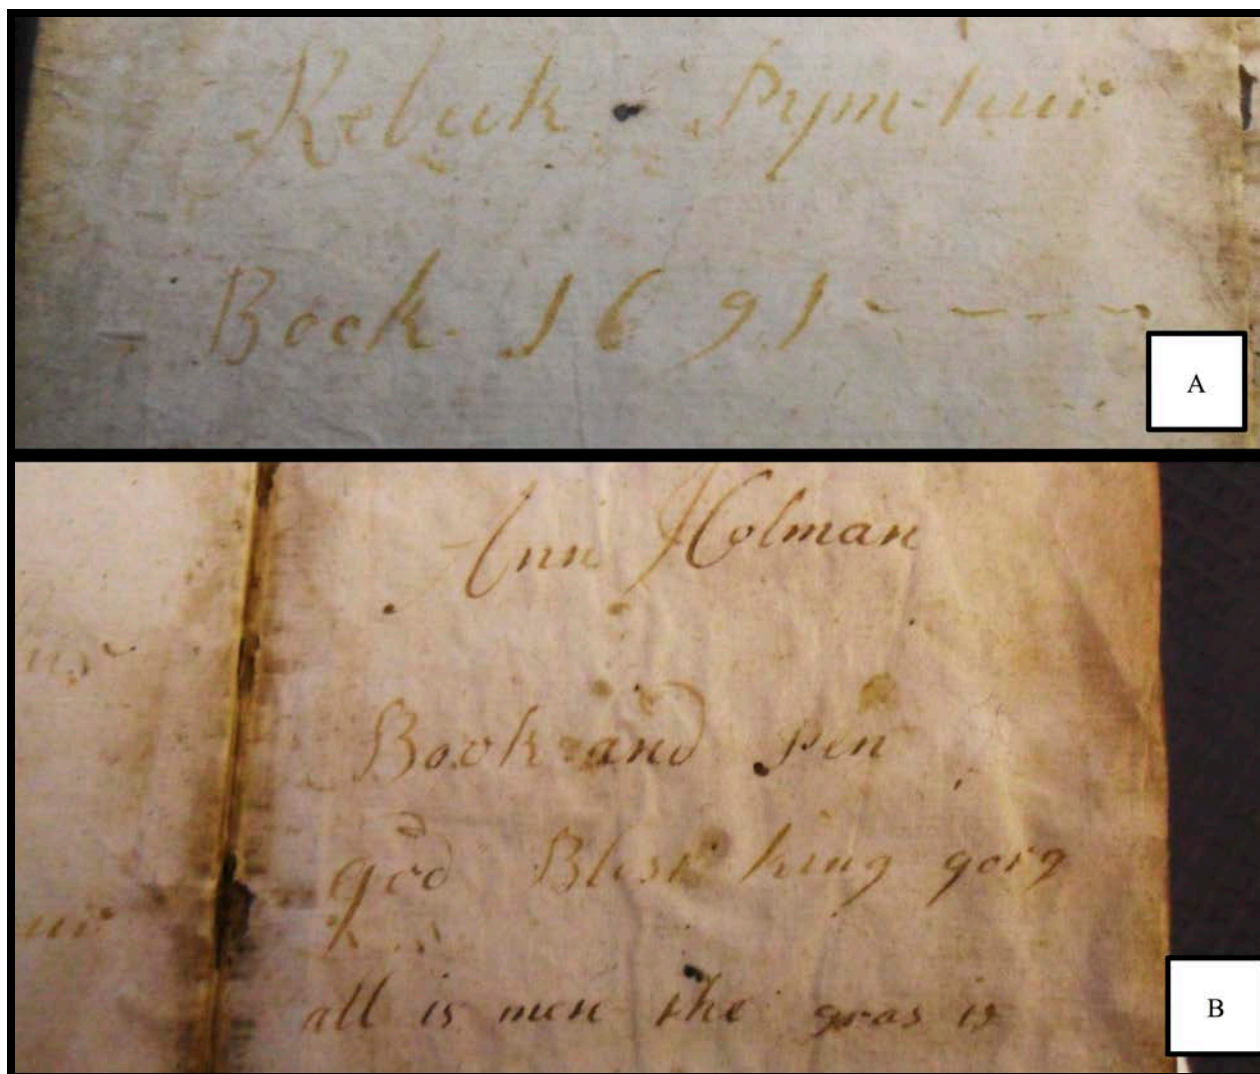 Rebeck Pym - hur
Book - 1691 - - - -
A
Ann Holman
Book and pen
god Bless king gorg
all is men the gras is
B